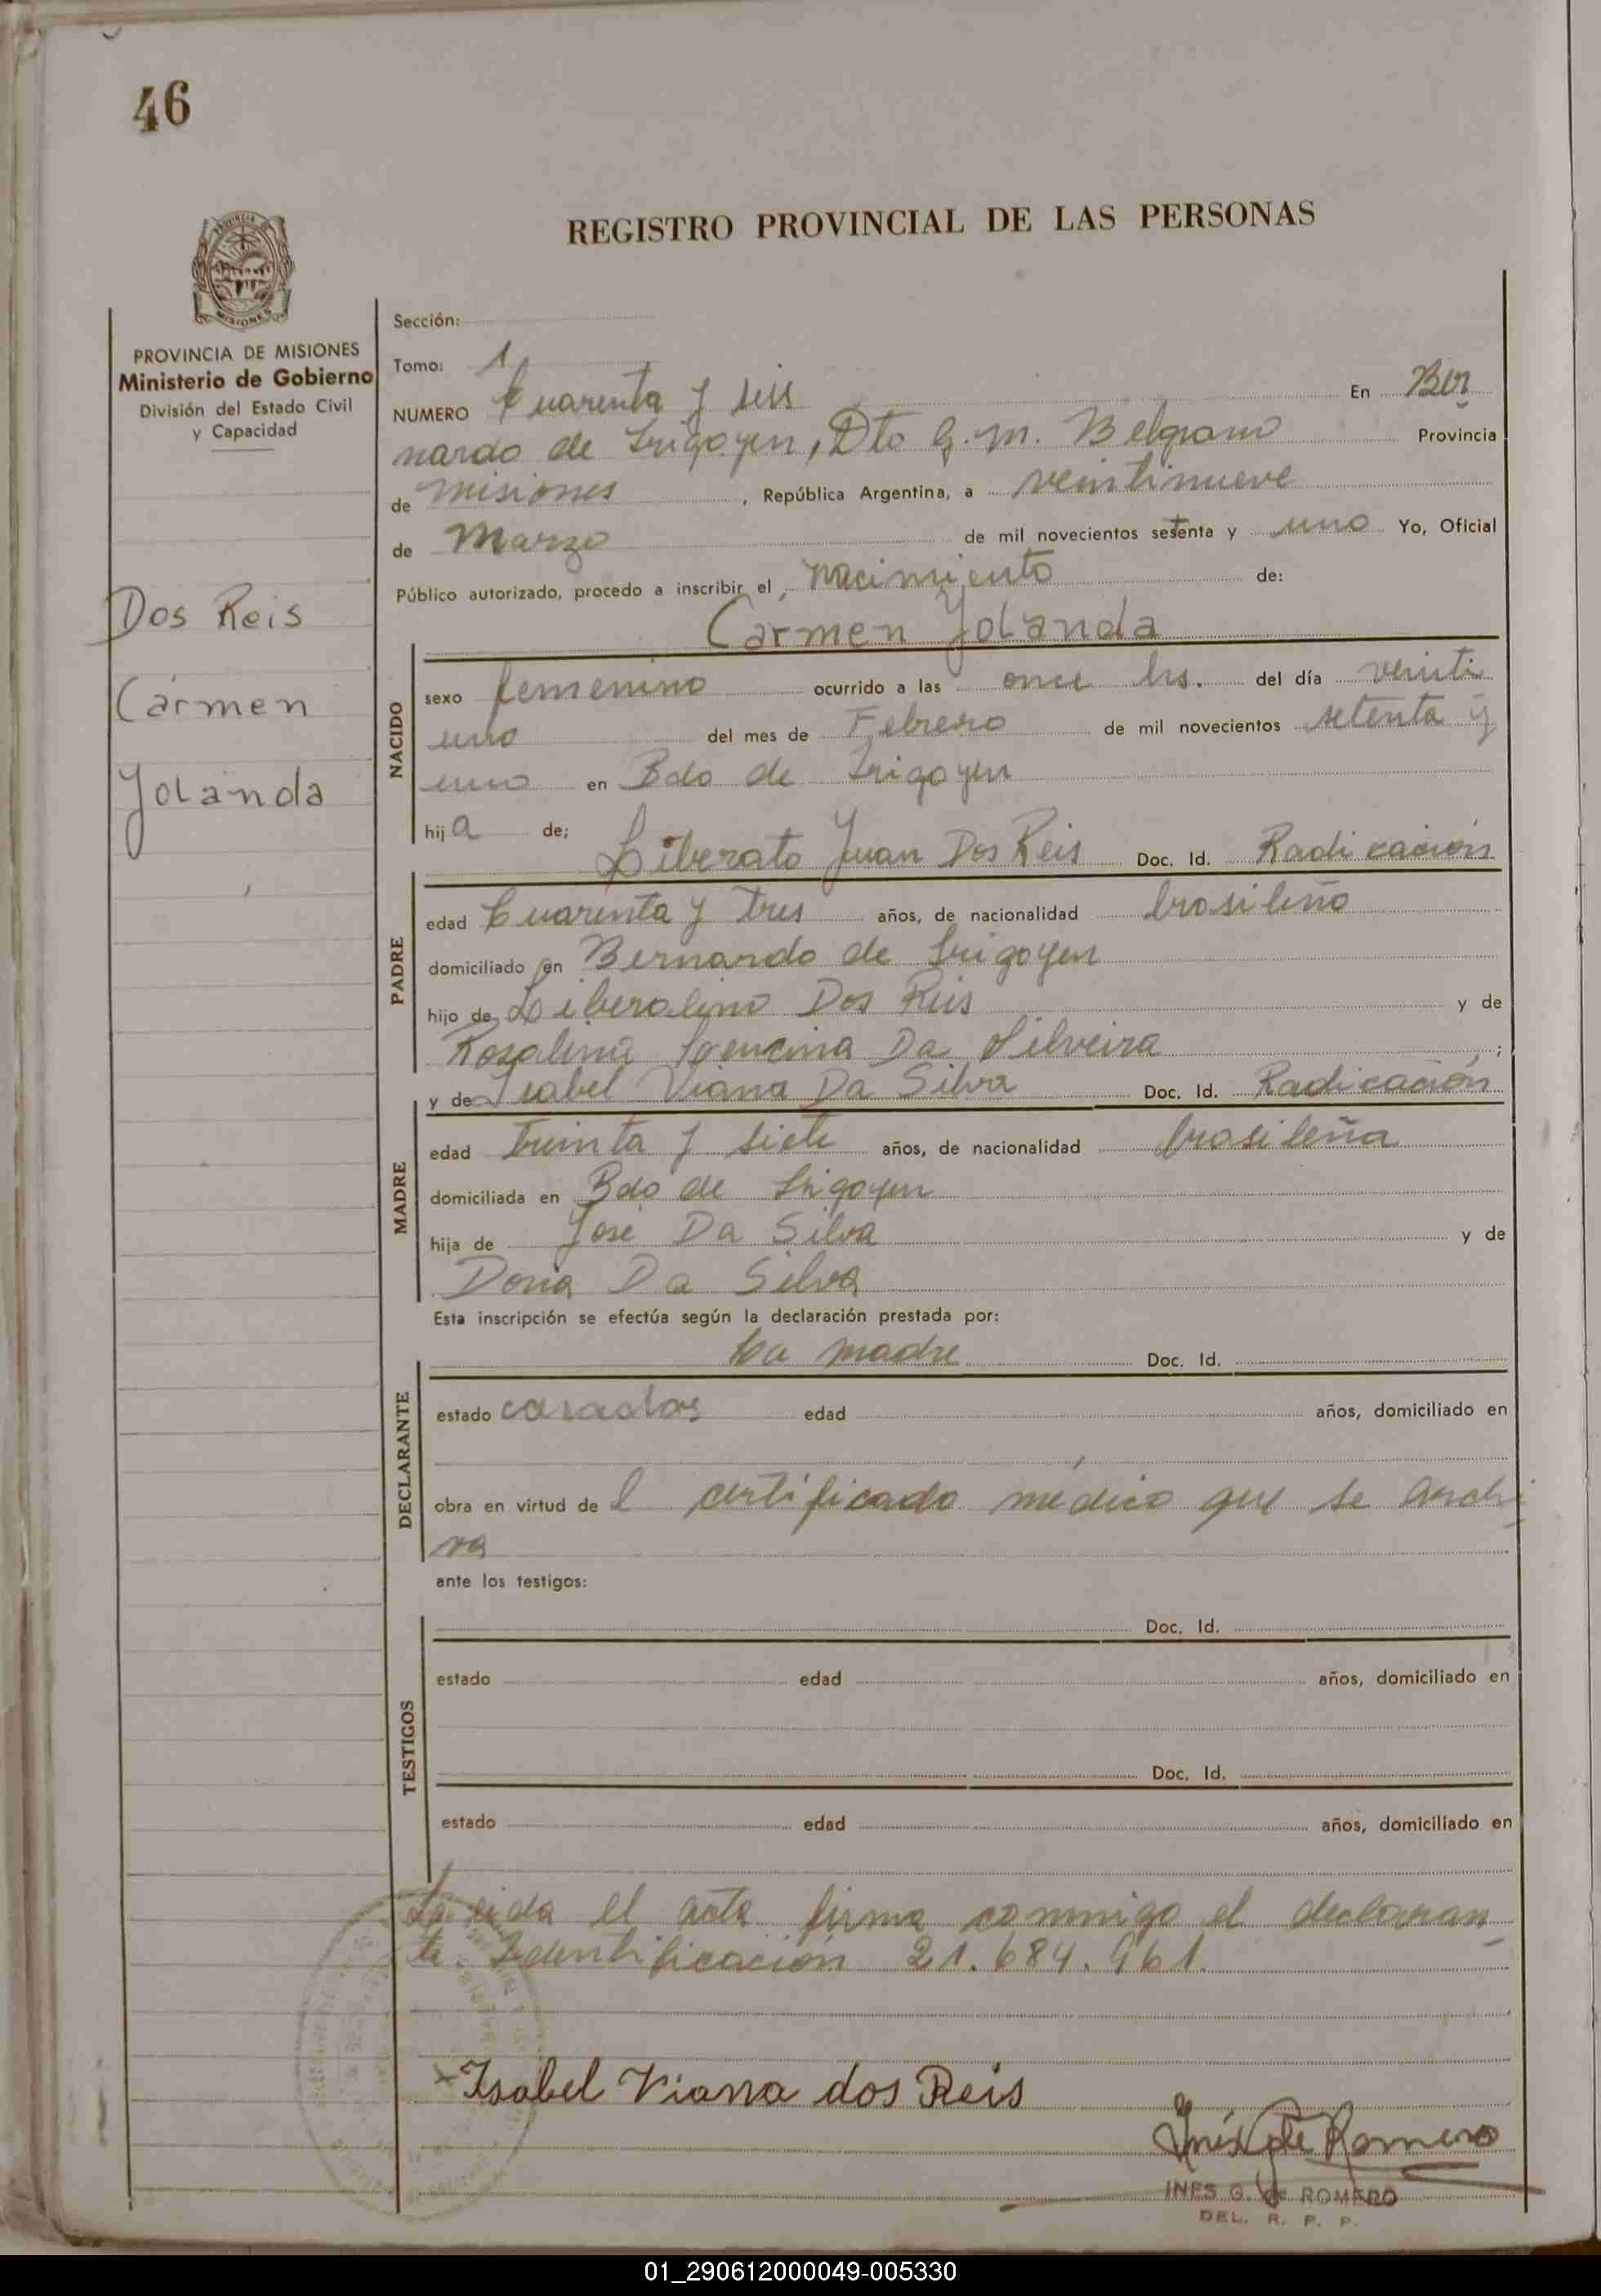 46
REGISTRO PROVINCIAL DE LAS PERSONAS
PROVINCIA
MISIONES
PROVINCIA DE MISIONES
Ministerio de Gobierno
División del Estado Civil
y Capacidad
Dos Reis
Carmen
Yolanda
Sección:
Tomo: 1
NUMERO Cuarenta y seis En Ber
nardo de Irigoyen, Dto G. M. Belgrano Provincia
de Misiones, República Argentina, a veintinueve
de Marzo de mil novecientos setenta y uno Yo, Oficial
Público autorizado, procedo a inscribir el, nacimiento de:
Carmen Yolanda
NACIDO
sexo femenino ocurrido a las once hs. del día veinti
uno del mes de Febrero de mil novecientos setenta y
uno en Bdo de Irigoyen
hija de; Liberato Juan Dos Reis Doc. Id. Radicación
PADRE
edad Cuarenta y tres años, de nacionalidad brasileño
domiciliado en Bernardo de Irigoyen
hijo de Liberalino Dos Reis y de
Rosalina Da Silveira ;
y de Isabel Viana Da Silva Doc. Id. Radicación
MADRE
edad treinta y siete años, de nacionalidad brasileña
domiciliada en Bdo de Irigoyen
hija de José Da Silva y de
Da Silva
Esta inscripción se efectúa según la declaración prestada por:
La madre Doc. Id.
DECLARANTE
estado casados edad años, domiciliado en
obra en virtud de l certificado médico que se archi
va
ante los testigos:
TESTIGOS
Doc. Id.
estado edad años, domiciliado en
Doc. Id.
estado edad años, domiciliado en
Leída el acta firma conmigo el declaran
te. Identificación 21.684.961.
x Isabel Viana dos Reis
Inés G de Romero
INES G. de ROMERO
DEL. R. P. P.
01_290612000049-005330